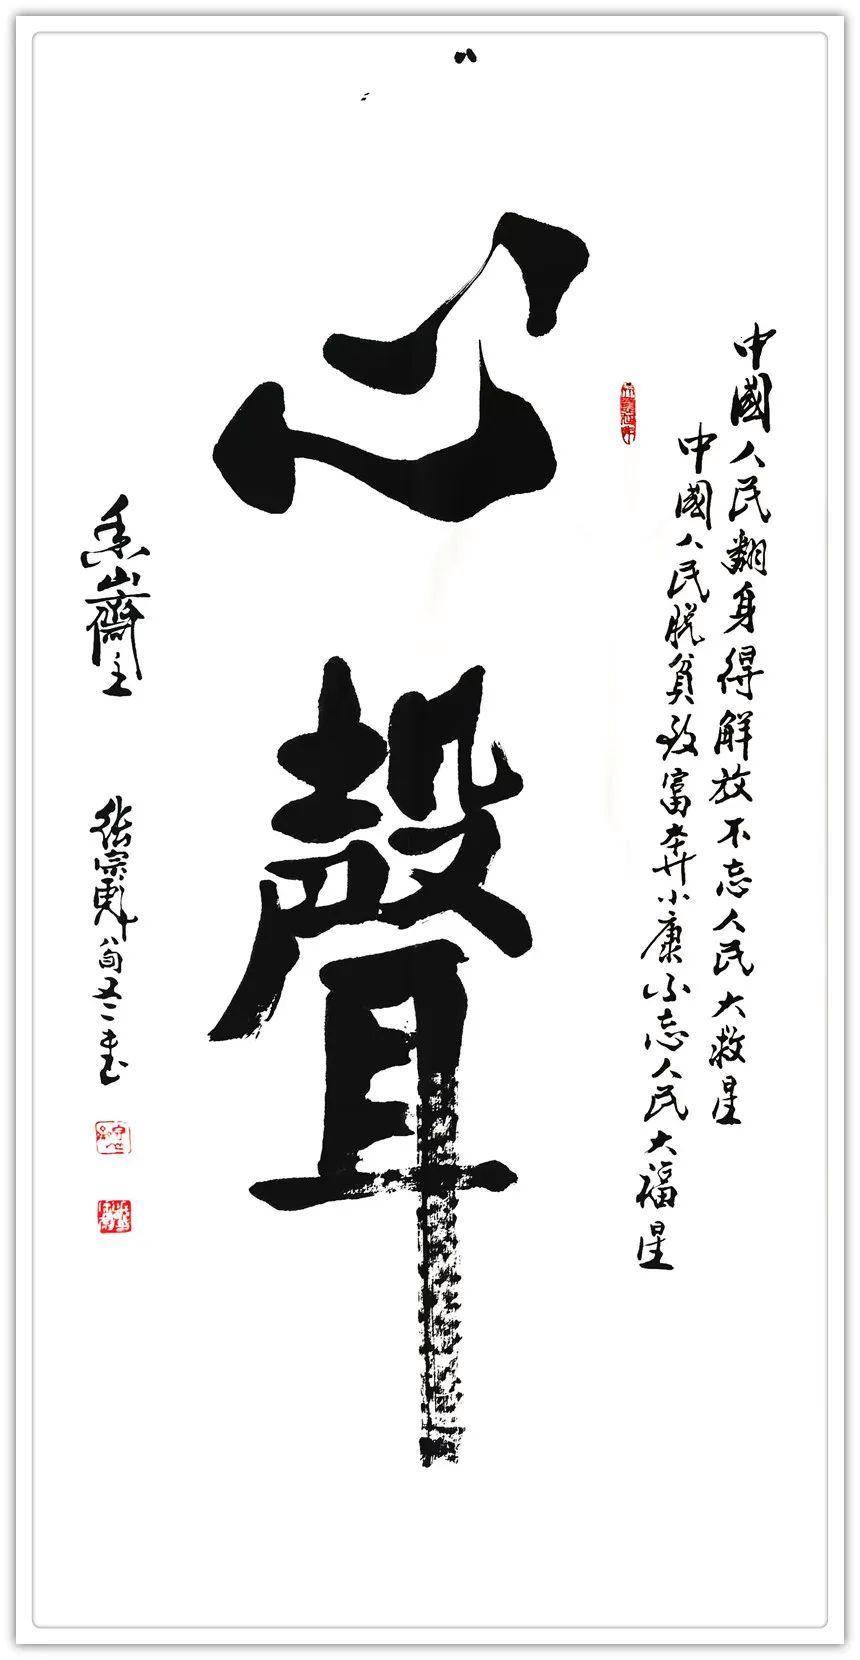 中國人民翻身得解放不忘人民大救星
中國人民脱貧致富奔小康不忘人民大福星
心聲
山齋主
張宗彪八旬書